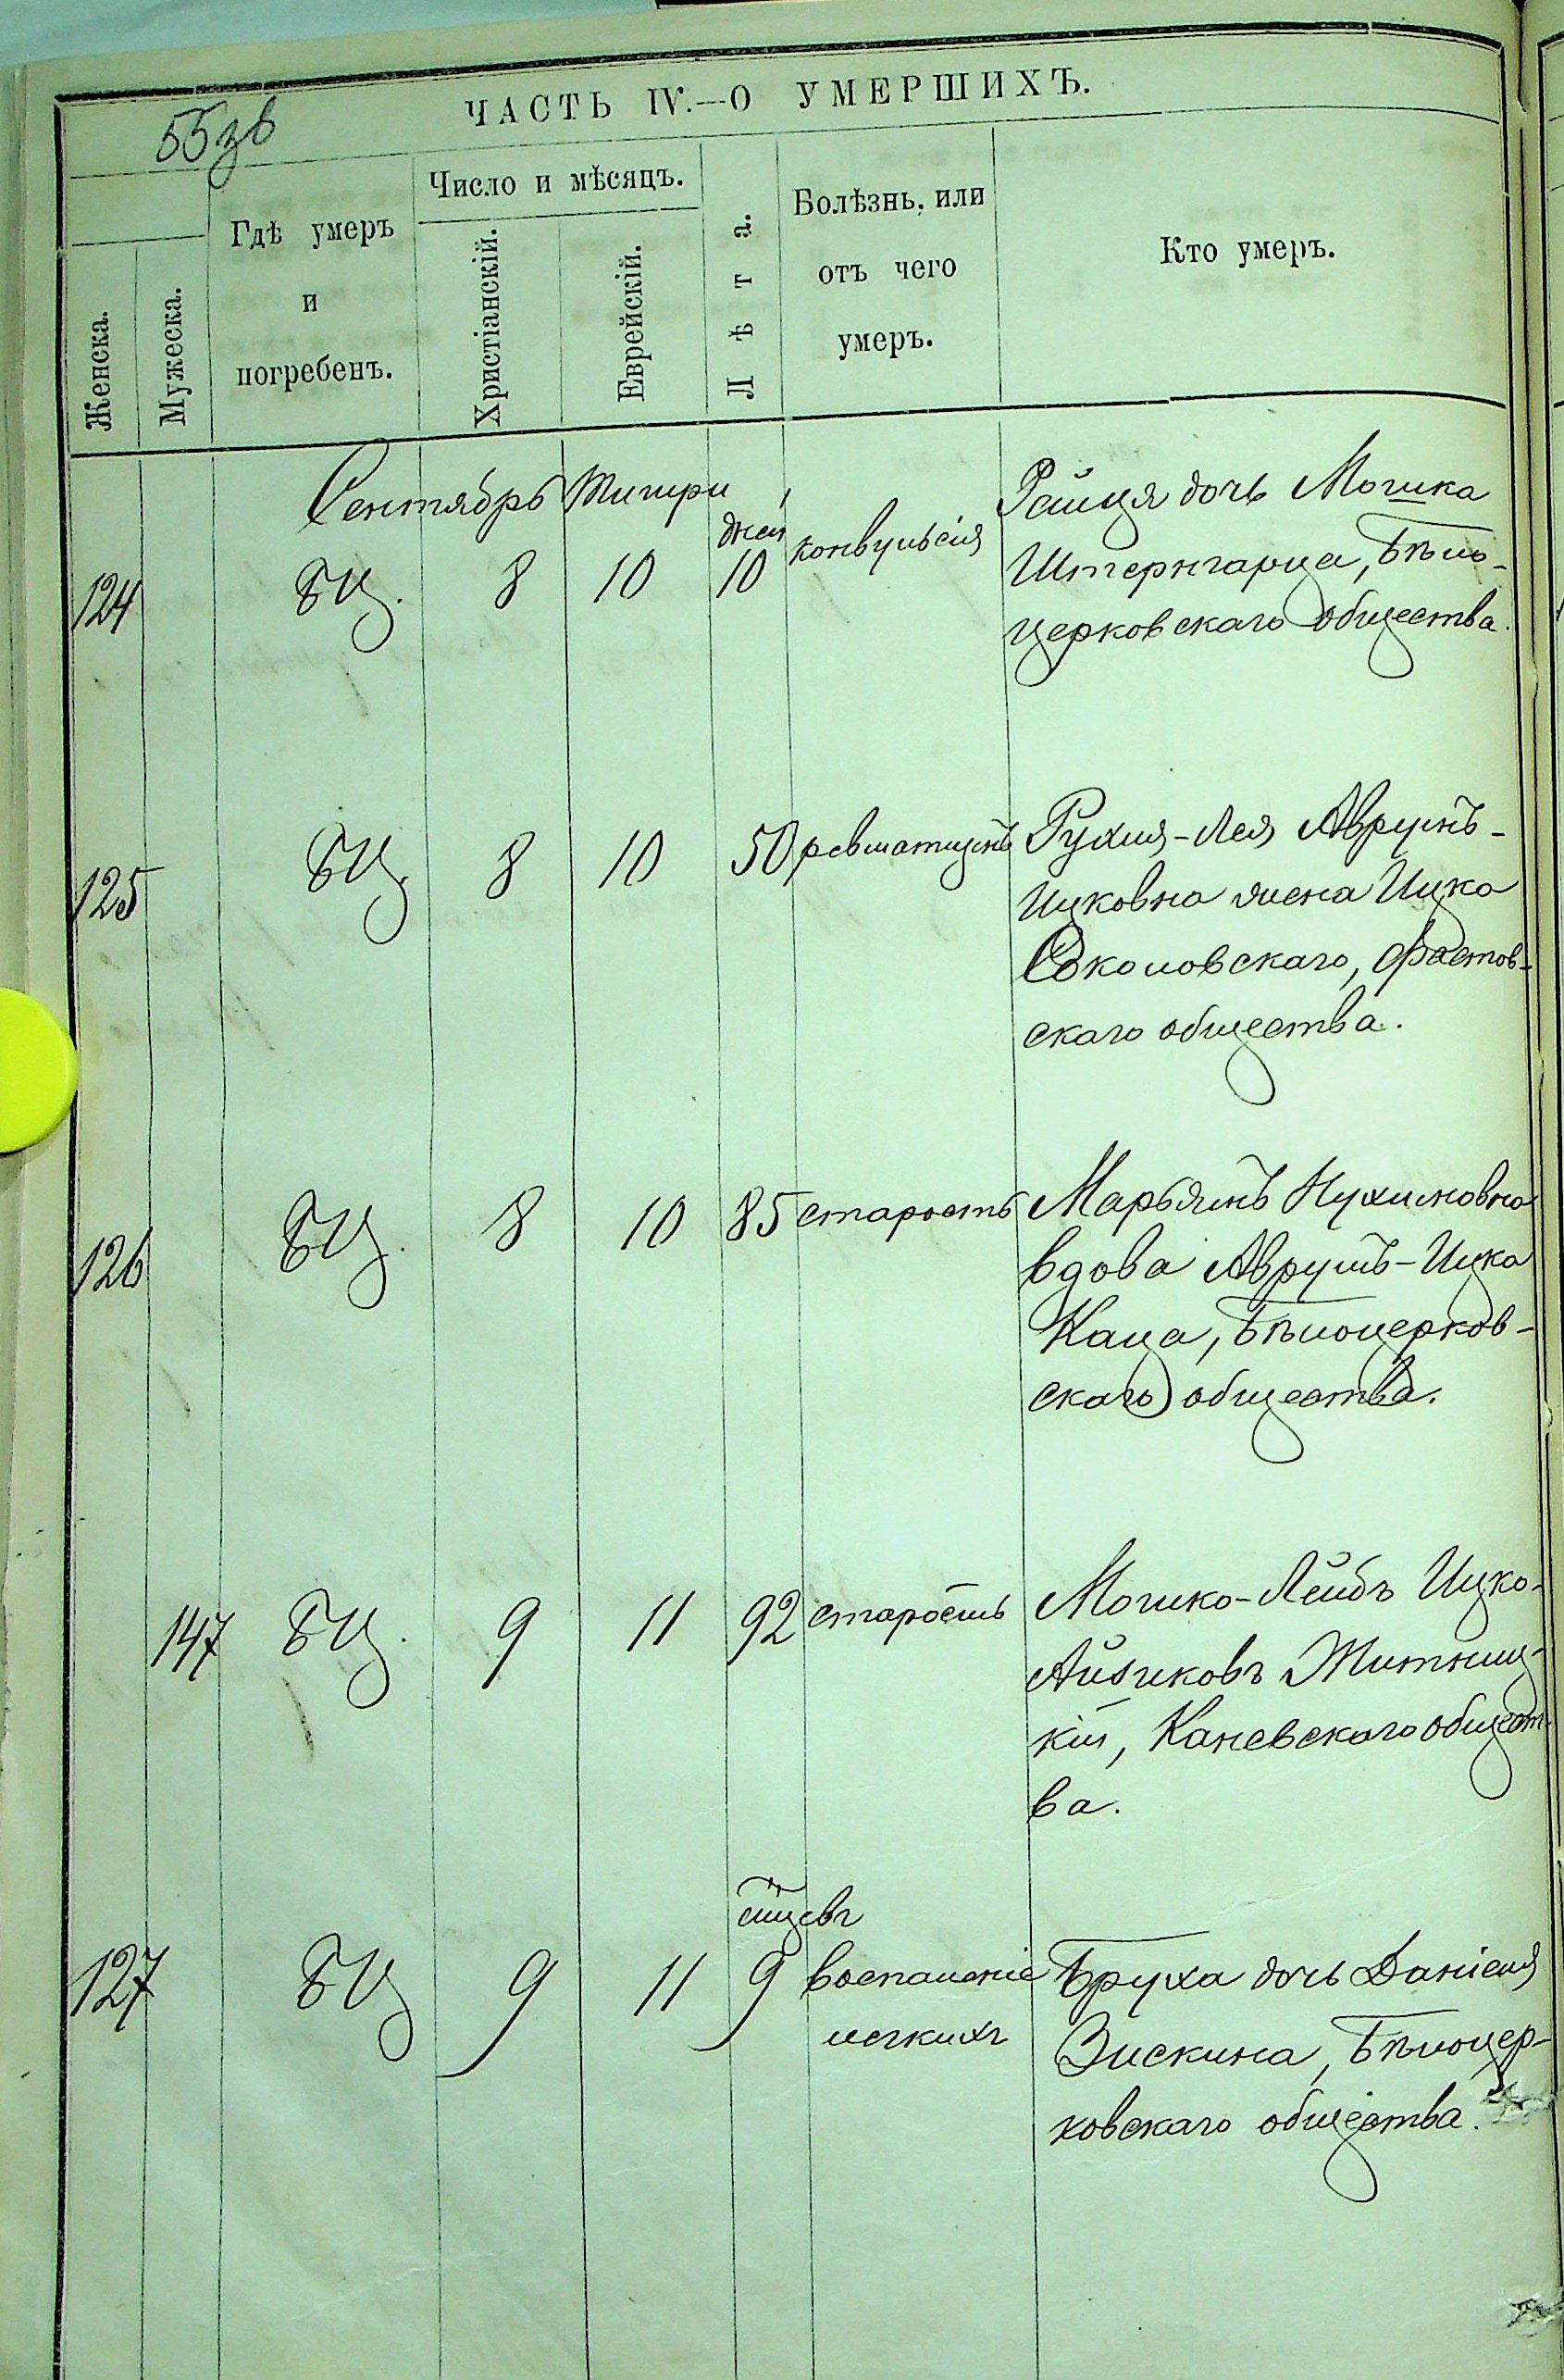 ЧАСТЬ IV.—О УМЕРШИХЪ.
55зв
Женска.
Мужеска.
Гдѣ умеръ
и
погребенъ.
Число и мѣсяцъ.
Христіанскій.
Еврейскій.
Лѣта.
Болѣзнь, или
отъ чего
умеръ.
Кто умеръ.
Сентябрь Тишри
124 БЦ. 8 10 дней 10 конвульсія
Рейця дочь Мошка
Штернгарца, Бѣло-
церковскаго общества.
125 БЦ. 8 10 50 ревматизмъ
Рухля-Лея Аврумъ-
Ицковна жена Ицка
Соколовскаго, Фастов-
скаго общества.
126 БЦ. 8 10 85 старость
Марьямъ Нухимовна
вдова Аврумъ-Ицка
Каца, Бѣлоцерков-
скаго общества.
147 БЦ. 9 11 92 старость
Мошко-Лейбъ Ицко-
Айзиковъ Житниц-
кій, Каневскаго общест-
ва.
127 БЦ 9 11 9 воспаленіе
легкихъ
Бруха дочь Даніеля
Зискина, Бѣлоцер-
ковскаго общества.